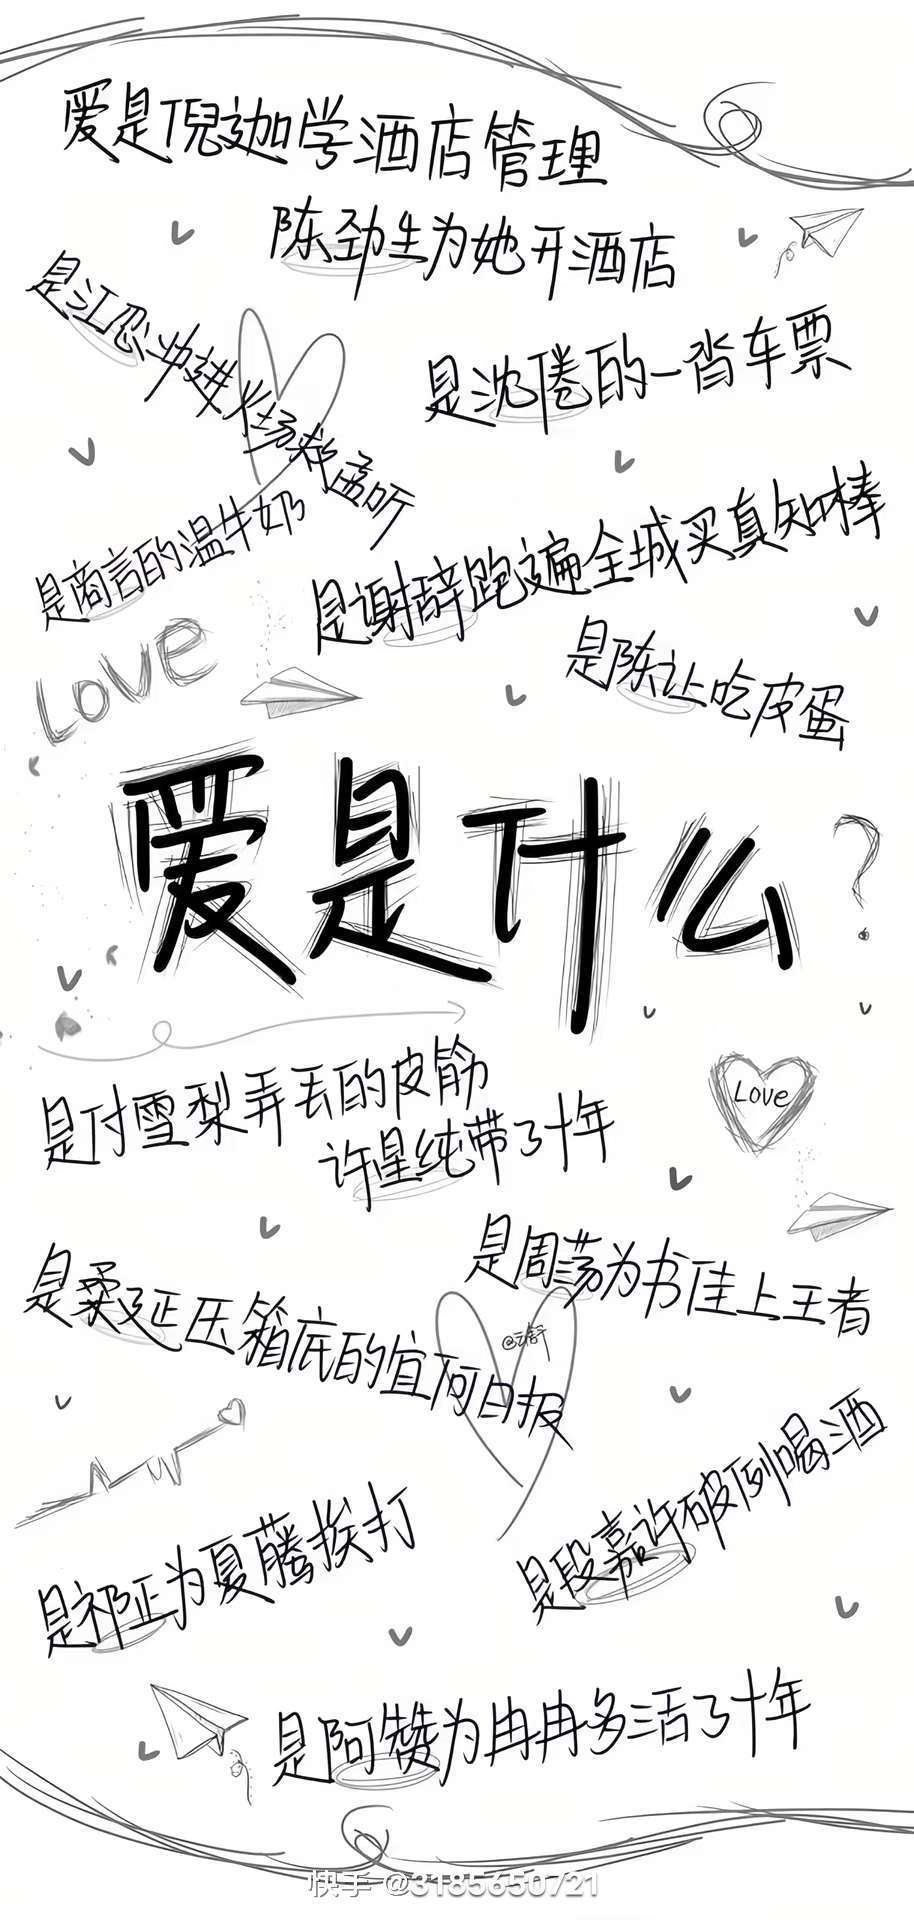 爱是倪迦学酒店管理
陈劲生为她开酒店
是江忍冲进火场救孟听
是沈倦的一沓车票
是商言的温牛奶
是谢辞跑遍全城买真知棒
Love
是陈让吃皮蛋
爱是什么?
是付雪梨弄丢的皮筋
许星纯带了十年
Love
是周荡为书佳上王者
是柔延压箱底的宜阿日报
是段嘉许破例喝酒
是祁正为夏藤挨打
是阿赞为冉冉多活了十年
快手 @3185650721